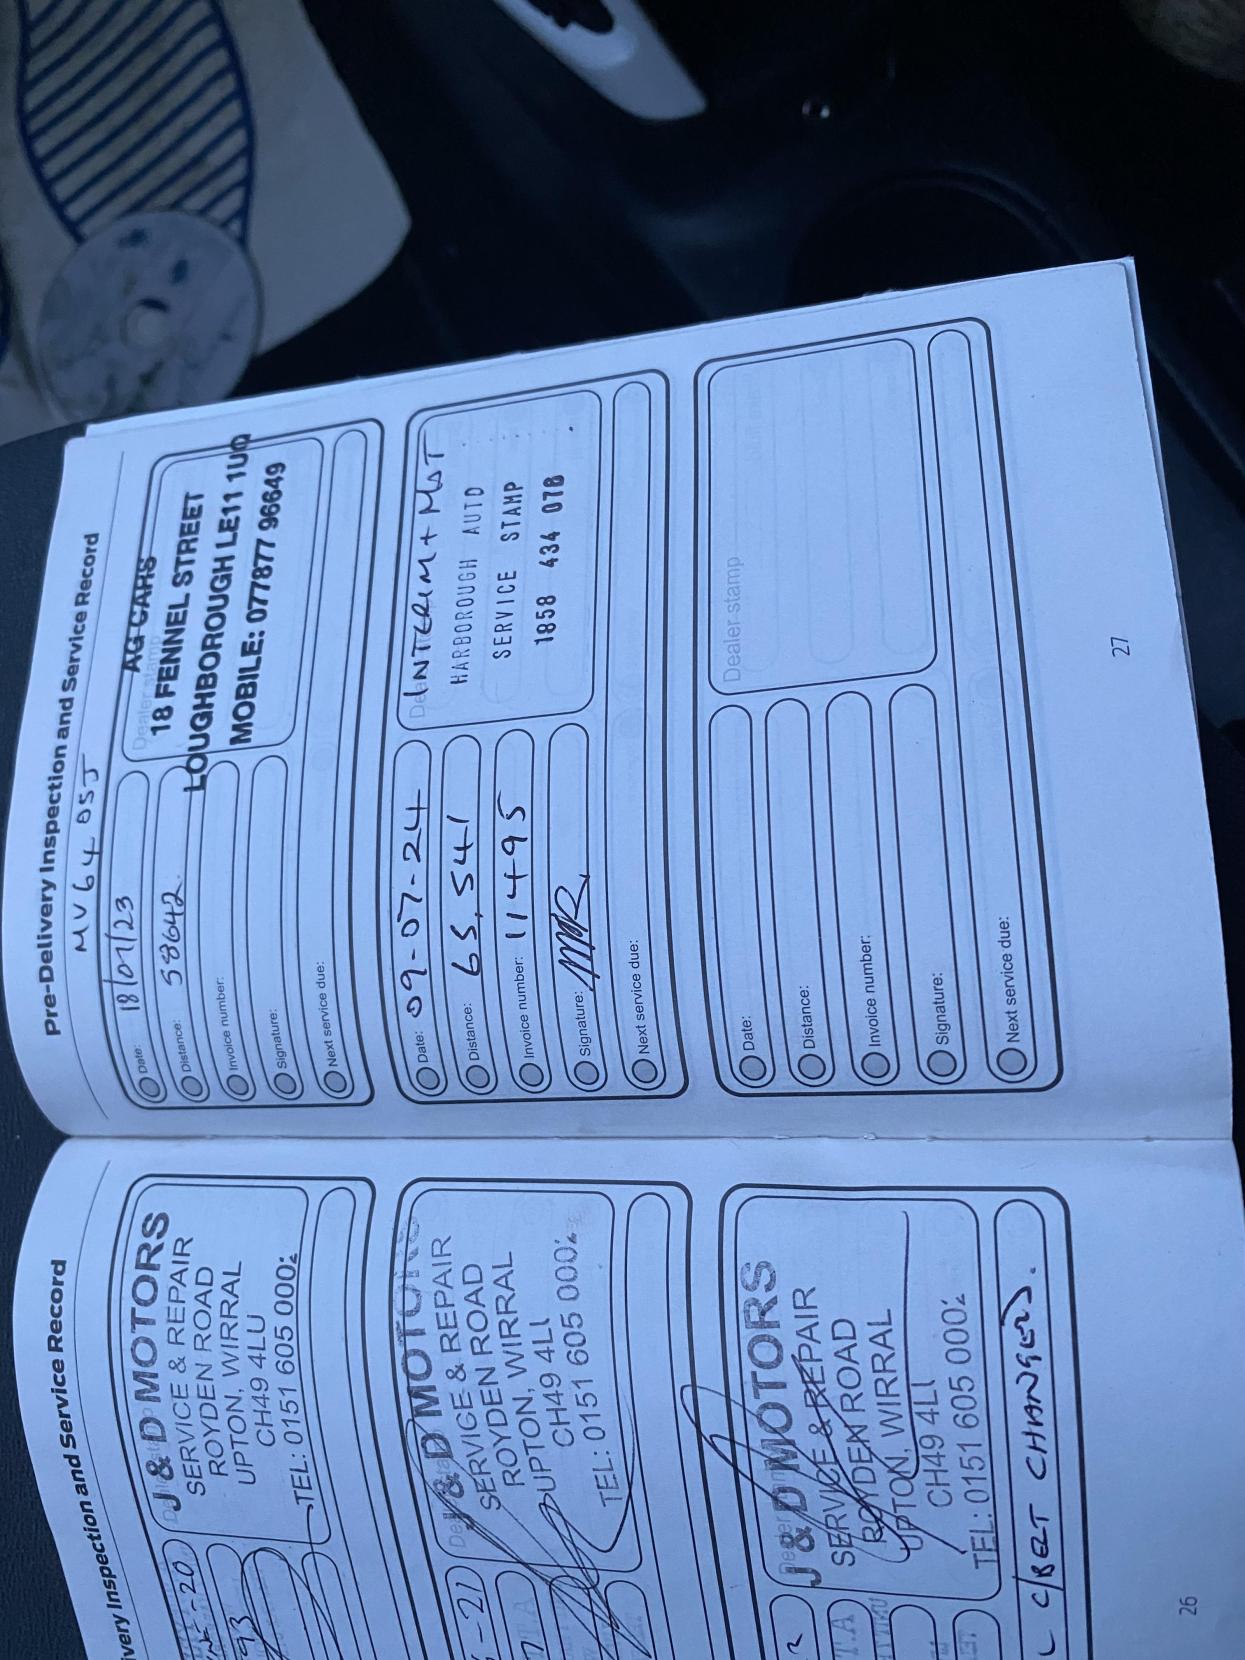 ivery Inspection and Service Record
-20
93
J & D MOTORS
SERVICE & REPAIR
ROYDEN ROAD
UPTON, WIRRAL
CH49 4LU
TEL: 0151 605 000
-21
J & D MOTORS
SERVICE & REPAIR
ROYDEN ROAD
UPTON, WIRRAL
CH49 4L
TEL: 0151 605 000
J & D MOTORS
SERVICE & REPAIR
ROYDEN ROAD
UPTON, WIRRAL
CH49 4L
TEL: 0151 605 000
C/BELT CHANGED.
26
Pre-Delivery Inspection and Service Record
MV64 OSJ
Date: 18/07/23
Distance: 58642.
Invoice number:
Signature:
Next service due:
Dealer stamp
AG CARS
18 FENNEL STREET
LOUGHBOROUGH LE11 1UQ
MOBILE: 077877 96649
Date: 09-07-24
Distance: 65,541
Invoice number: 11495
Signature:
Next service due:
INTERIM + MOT
HARBOROUGH AUTO
SERVICE STAMP
1858 434 078
Date:
Distance:
Invoice number:
Signature:
Next service due:
Dealer stamp
27